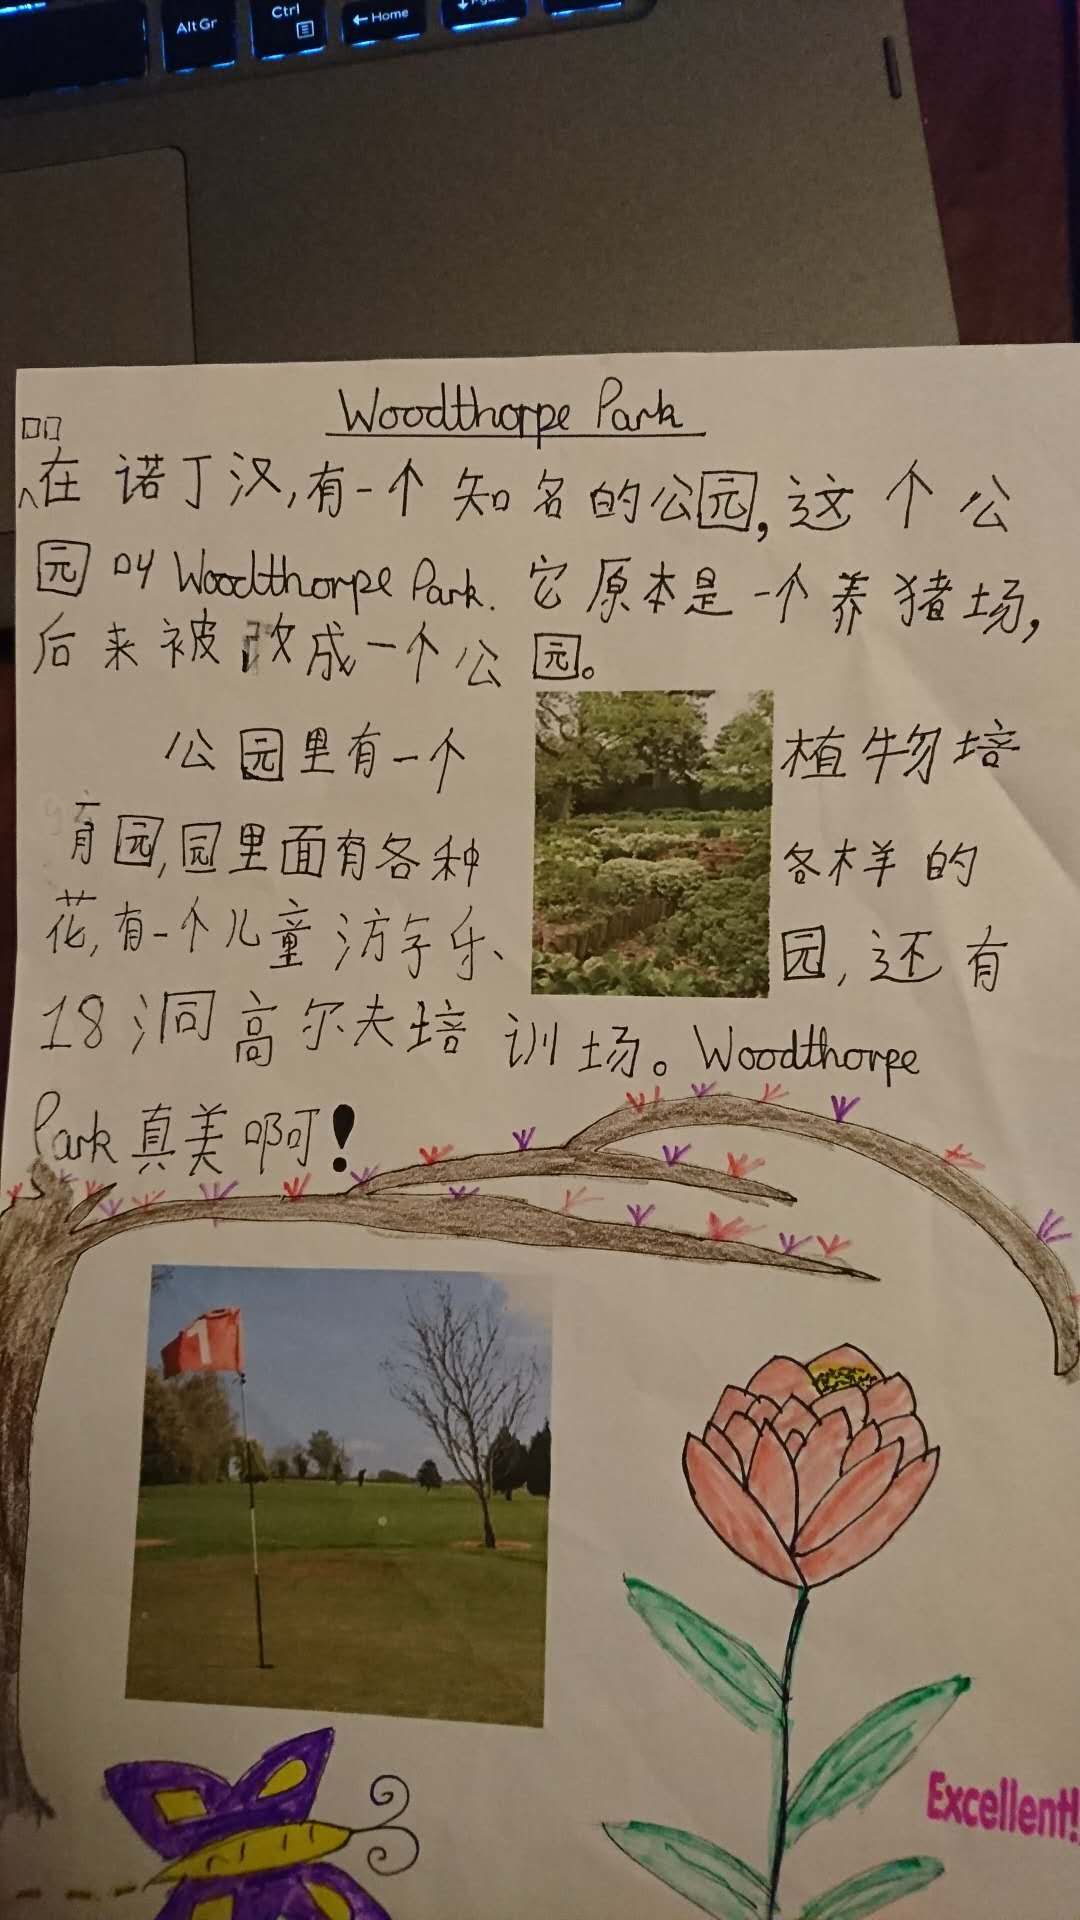 Alt Gr
Ctrl
←Home
Woodthorpe Park
□□
^在诺丁汉,有一个知名的公园,这个公
园叫Woodthorpe Park.它原本是一个养猪场,
后来被改成一个公园。
公园里有一个植物培
育园,园里面有各种各样的
花,有一个儿童游乐园,还有
18洞高尔夫培训场。Woodthorpe
Park真美啊!
1
Excellent!